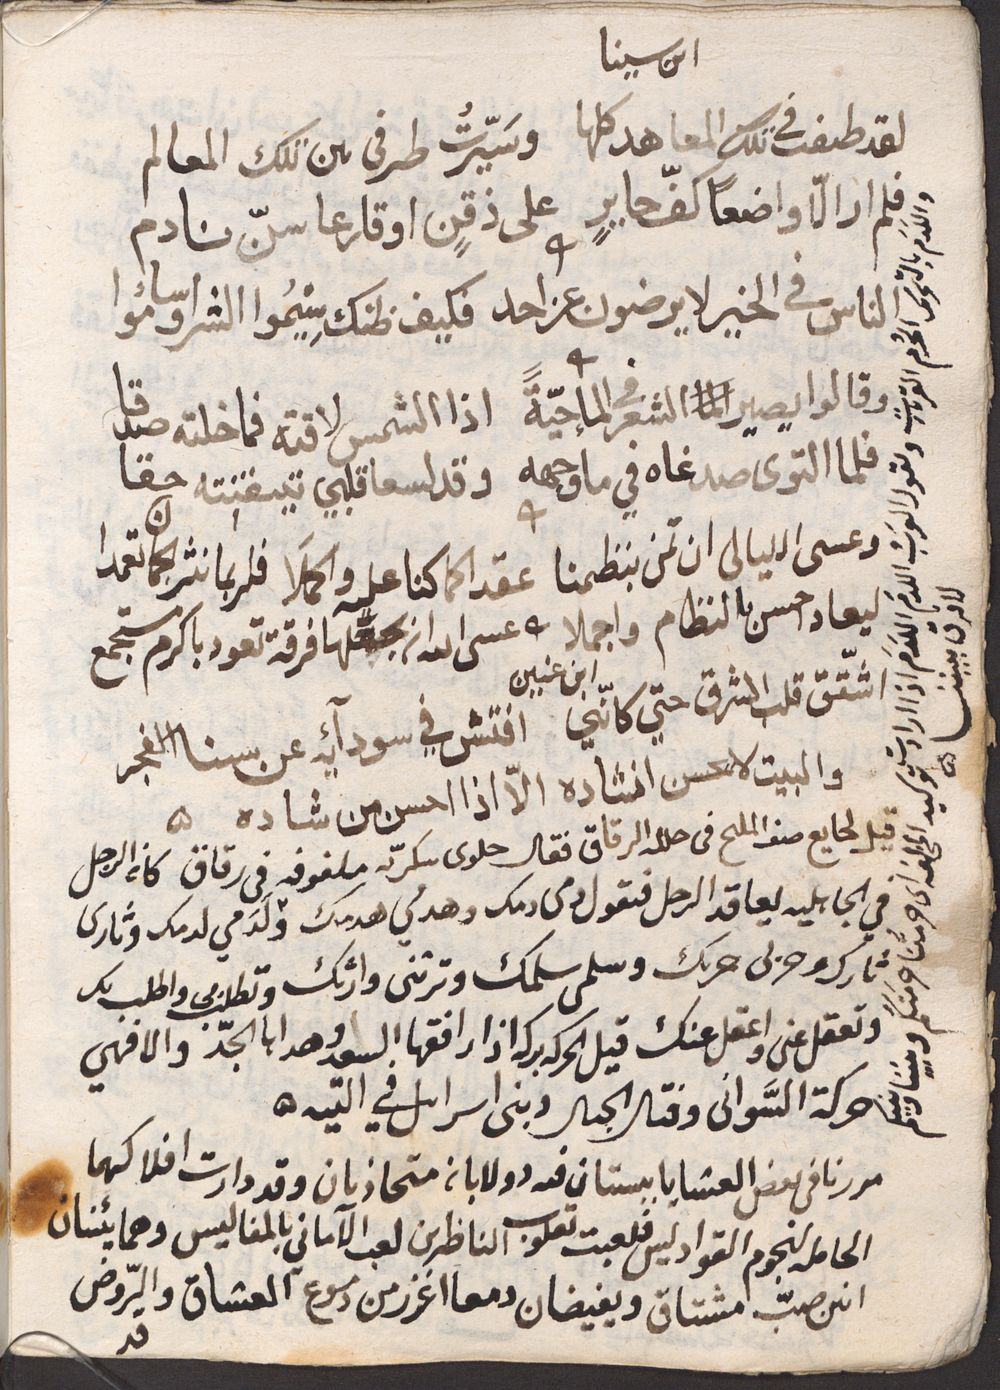 ابن سينا
لقد طفت في تلك المعاهد كلها وسَيّرتُ طرفى بين تلك المعالم
فلم ار الّا واضعاً كفّ حايرٍ على ذقنٍ او قارعا سنّ نادم
الناس في الخير لا يرضون عن احد فكيف ظنك سِيْمُوا الشر او سامُوا
وقالوا يصير الشعر في الماء حيّةً اذا الشمس لاقته فما خلته صدقا
فلما التوى صدغاه في ماء وجهه وقد لسعا قلبي تيقنته حقا
وعسى الليالى ان تمن بنظمنا عقدا كما كنا عليه واكملا فلربما نثر الجمان تعمدا
ليعاد احسن بالنظام واجملا عسى الله ان يجعلها فرقة تعود باكرم مستجمع
ابن عنين
اشقّق قلب الشرق حتي كانّني افتش في سودآئه عن سنا الفجر
والبيت لا يحسن انشاده الّا اذا احسن من شاده
قيل لبايع صف الملح في حلله الرقاق فقال حلوى سكريّه ملفوفه في رقاق كان الرجل
في الجاهليه يعاقد الرجل فتقول دمى دمك وهدمي هدمك ولَدَمي لدمك وثارى
ثارك وحربى حربك وسلمى سلمك وترثنى وارثك وتطلب بى واطلب بك
وتعقل عنى واعقل عنك قيل الحركه بركه اذا رافقها السعد وهداها الجدّ والا فهي
حركة السَّوانى وفتال الحبال وبنى اسرايل في التيه
مررنا في بعض العشايا ببستان فيه دولابان متحاذيان وقد دارت افلاكهما
الحامله لنجوم القواديس فلعبت بقلوب الناظرين لعب الآماني بالمفاليس وهما يئنان
انين صبّ مشتاق ويفيضان دمعا اغزر من دموع العشاق والرّوض
قد